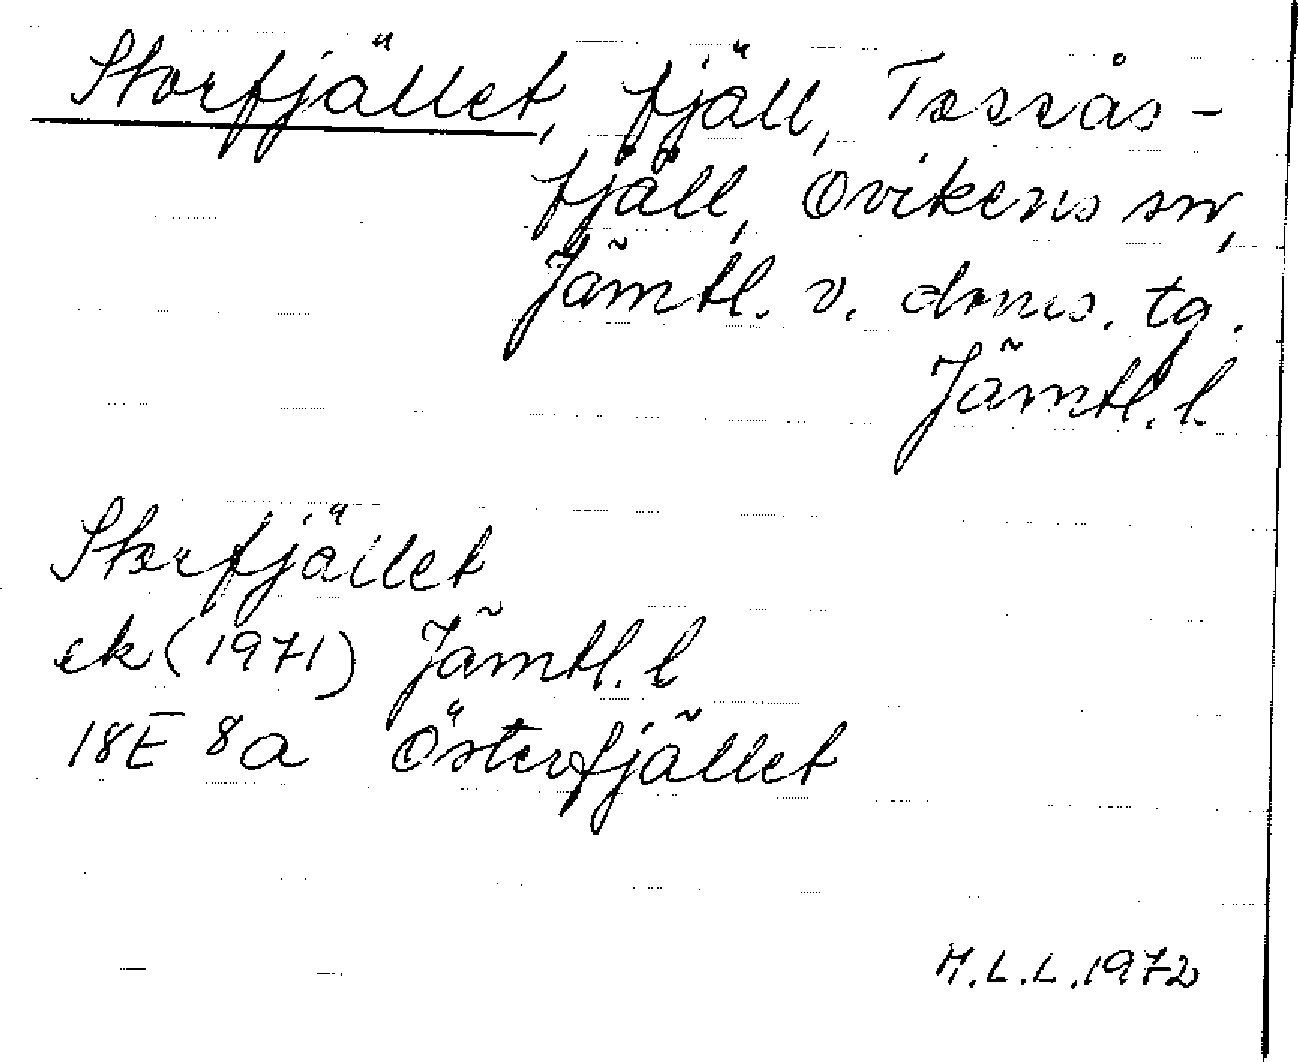 Storfjället, fjäll, Tossås-
fjäll, Ovikens sn,
Jämtl. v. doms. tg.
Jämtl. l.
Storfjället
ek (1971) Jämtl. l
18E 8a Österfjället
M.L.L. 1972